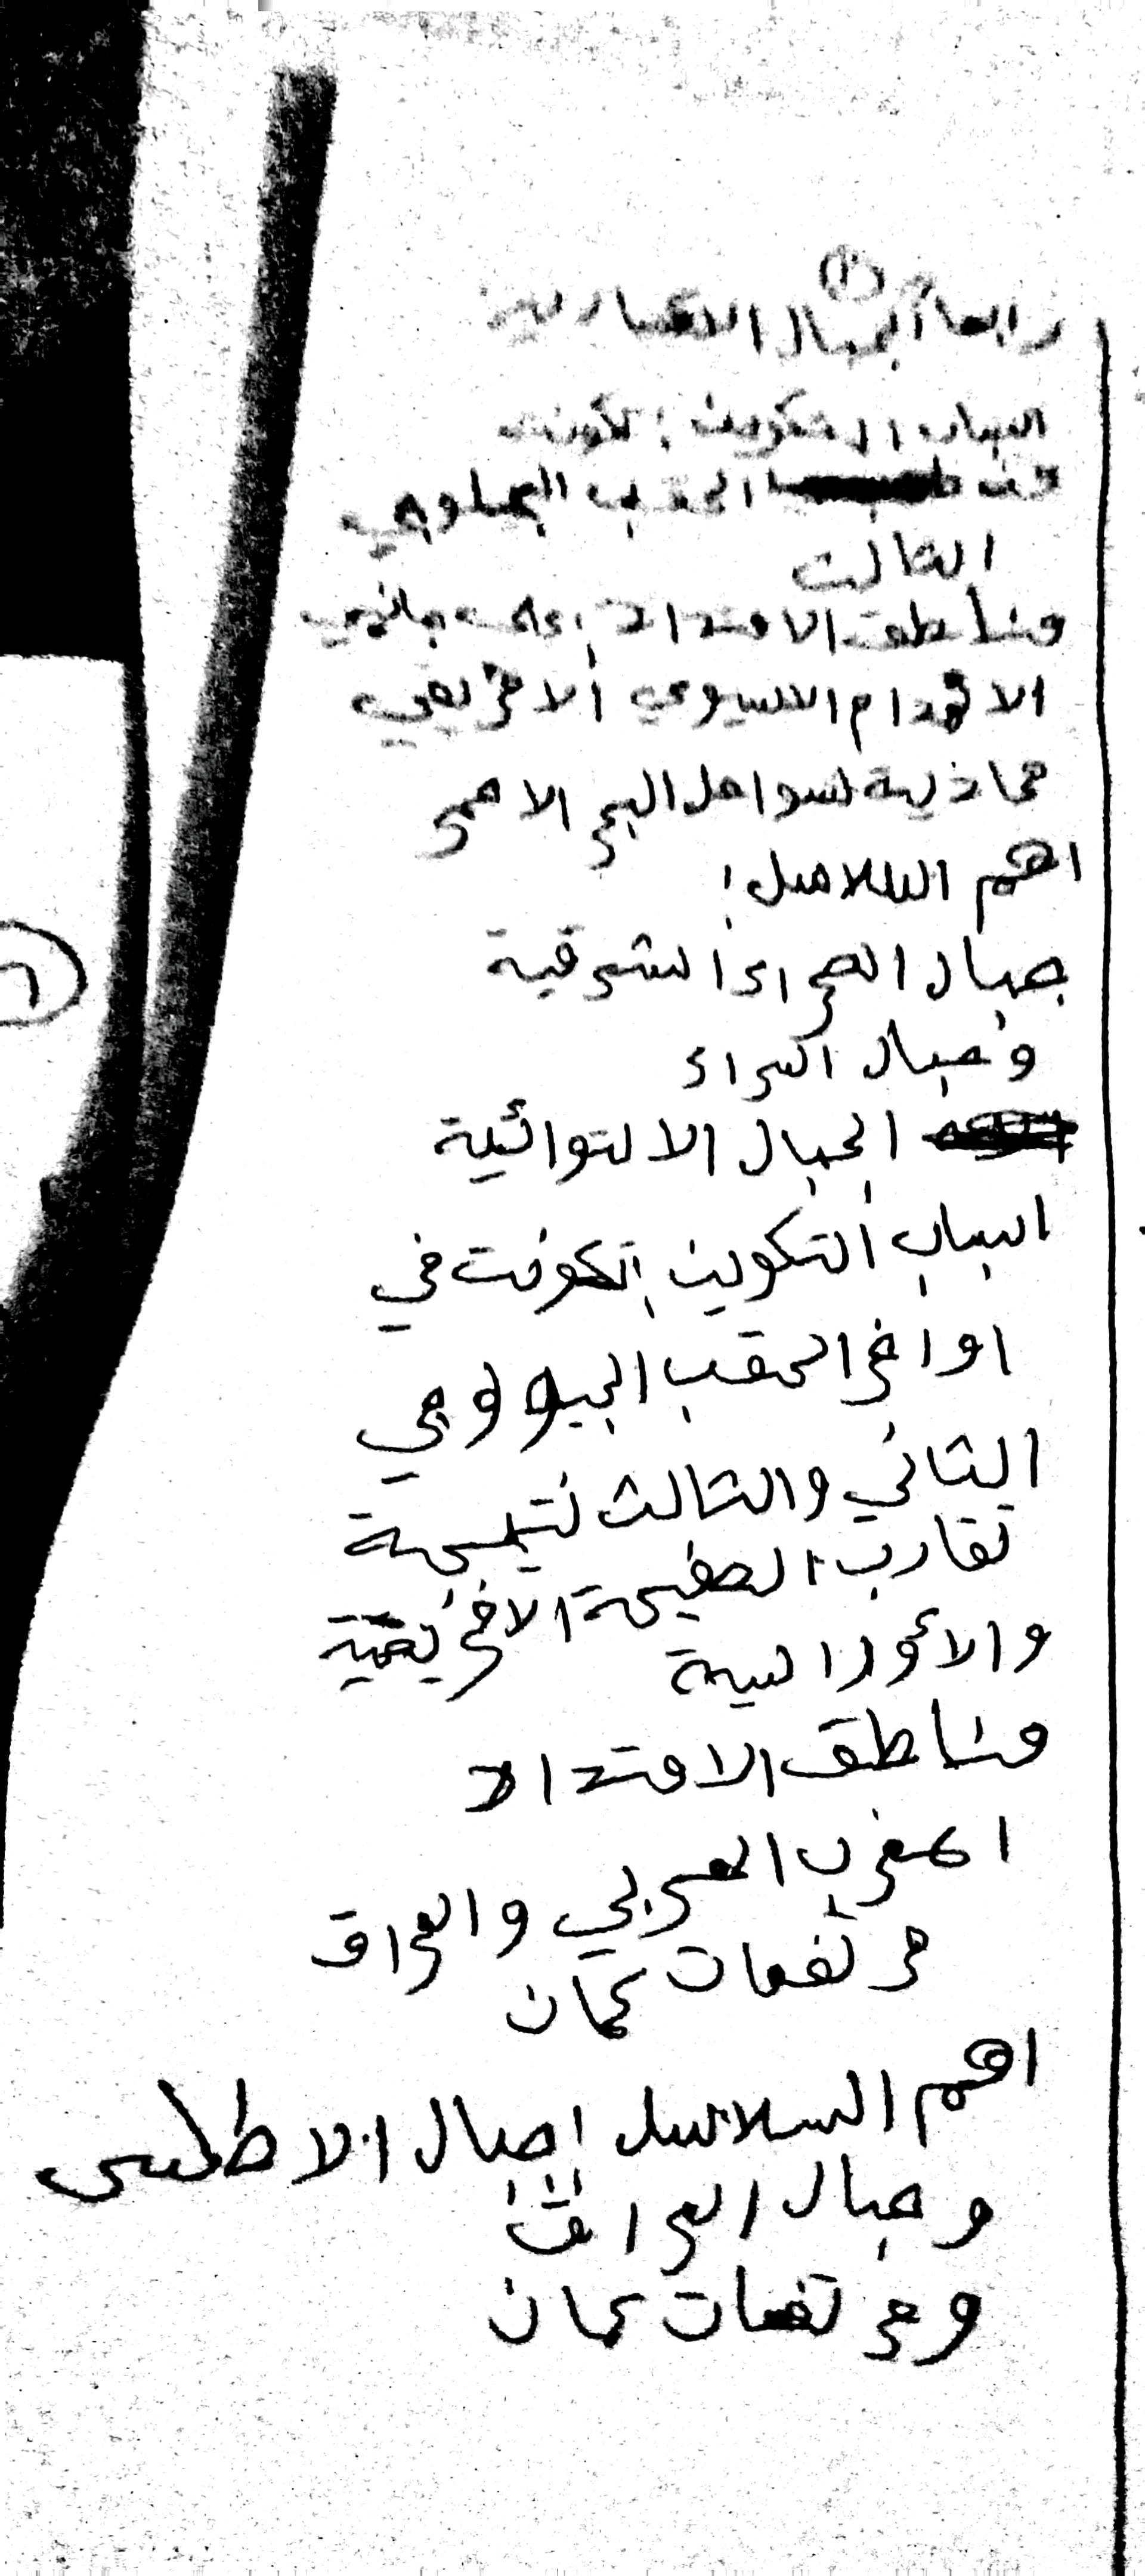 ①
رابعا الجبال الانكسارية:
اسباب التكوين: تكونت
في الحقب الجيلوجي
الثالث
مناطق الامتداد: على جانبي
الاخدام الاسيوي الافريقي
محاذية لسواحل البحر الاحمر
اهم السلاسل:
جبال الصحراء الشرقية
وجبال السراء
الجبال الالتوائية
اسباب التكوين: تكونت في
اواخر الحقب الجيولوجي
الثاني والثالث نتيجة
تقارب الصفيحة الافريقية
والأوراسية
مناطق الامتداد
المغرب العربي والعراق
مرتفعات عمان
اهم السلاسل: جبال الاطلس
وجبال العراق
ومرتفعات عمان